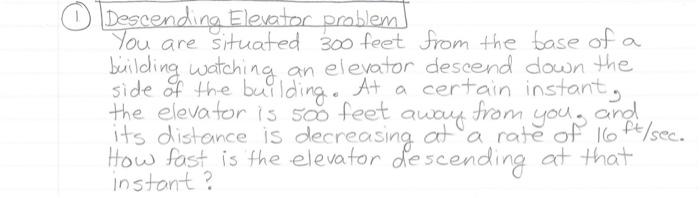 ① Descending Elevator problem
You are situated 300 feet from the base of a
building watching an elevator descend down the
side of the building. At a certain instant,
the elevator is 500 feet away from you, and
its distance is decreasing at a rate of 16 ft/sec.
How fast is the elevator descending at that
instant?